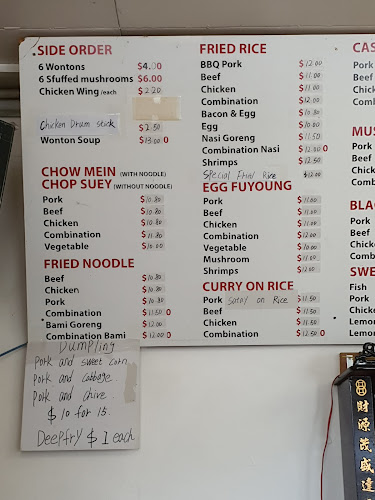 SIDE ORDER
6 Wontons $4.00
6 Sfuffed mushrooms $6.00
Chicken Wing /each $2.20
Chicken Drum stick $2.50
Wonton Soup $13.00 0
CHOW MEIN (WITH NOODLE)
CHOP SUEY (WITHOUT NOODLE)
Pork $10.80
Beef $10.80
Chicken $10.80
Combination $11.80
Vegetable $10.00
FRIED NOODLE
Beef $10.80
Chicken $10.80
Pork $10.80
Combination $11.50 0
Bami Goreng $12.00
Combination Bami $12.00 0
Dumpling
Pork and sweet corn
Pork and Cabbage
Pork and chive
$10 for 15.
Deepfry $1 each
FRIED RICE
BBQ Pork $12.00
Beef $11.00
Chicken $11.00
Combination $12.00
Bacon & Egg $10.80
Egg $10.00
Nasi Goreng $11.50
Combination Nasi $12.00 0
Shrimps $12.50
Special Fried Rice $12.00
EGG FUYOUNG
Pork $11.00
Beef $11.00
Chicken $11.00
Combination $12.00
Vegetable $10.00
Mushroom $11.00
Shrimps $12.00
CURRY ON RICE
Pork Satay on Rice $11.50
Beef $11.50
Chicken $11.50
Combination $12.50
CAS
Pork
Beef
Chick
Comb
MUS
Pork
Beef
Chick
Comb
BLA
Pork
Beef
Chick
SWE
Fish
Pork
Chick
Lemo
Lemo
財源茂盛達